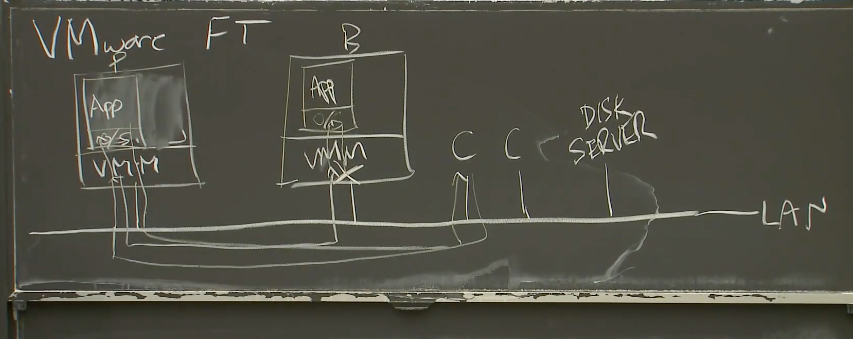 VMware FT
P
App
O/S
VMM
B
App
O/S
VMM
C
C
DISK
SERVER
LAN